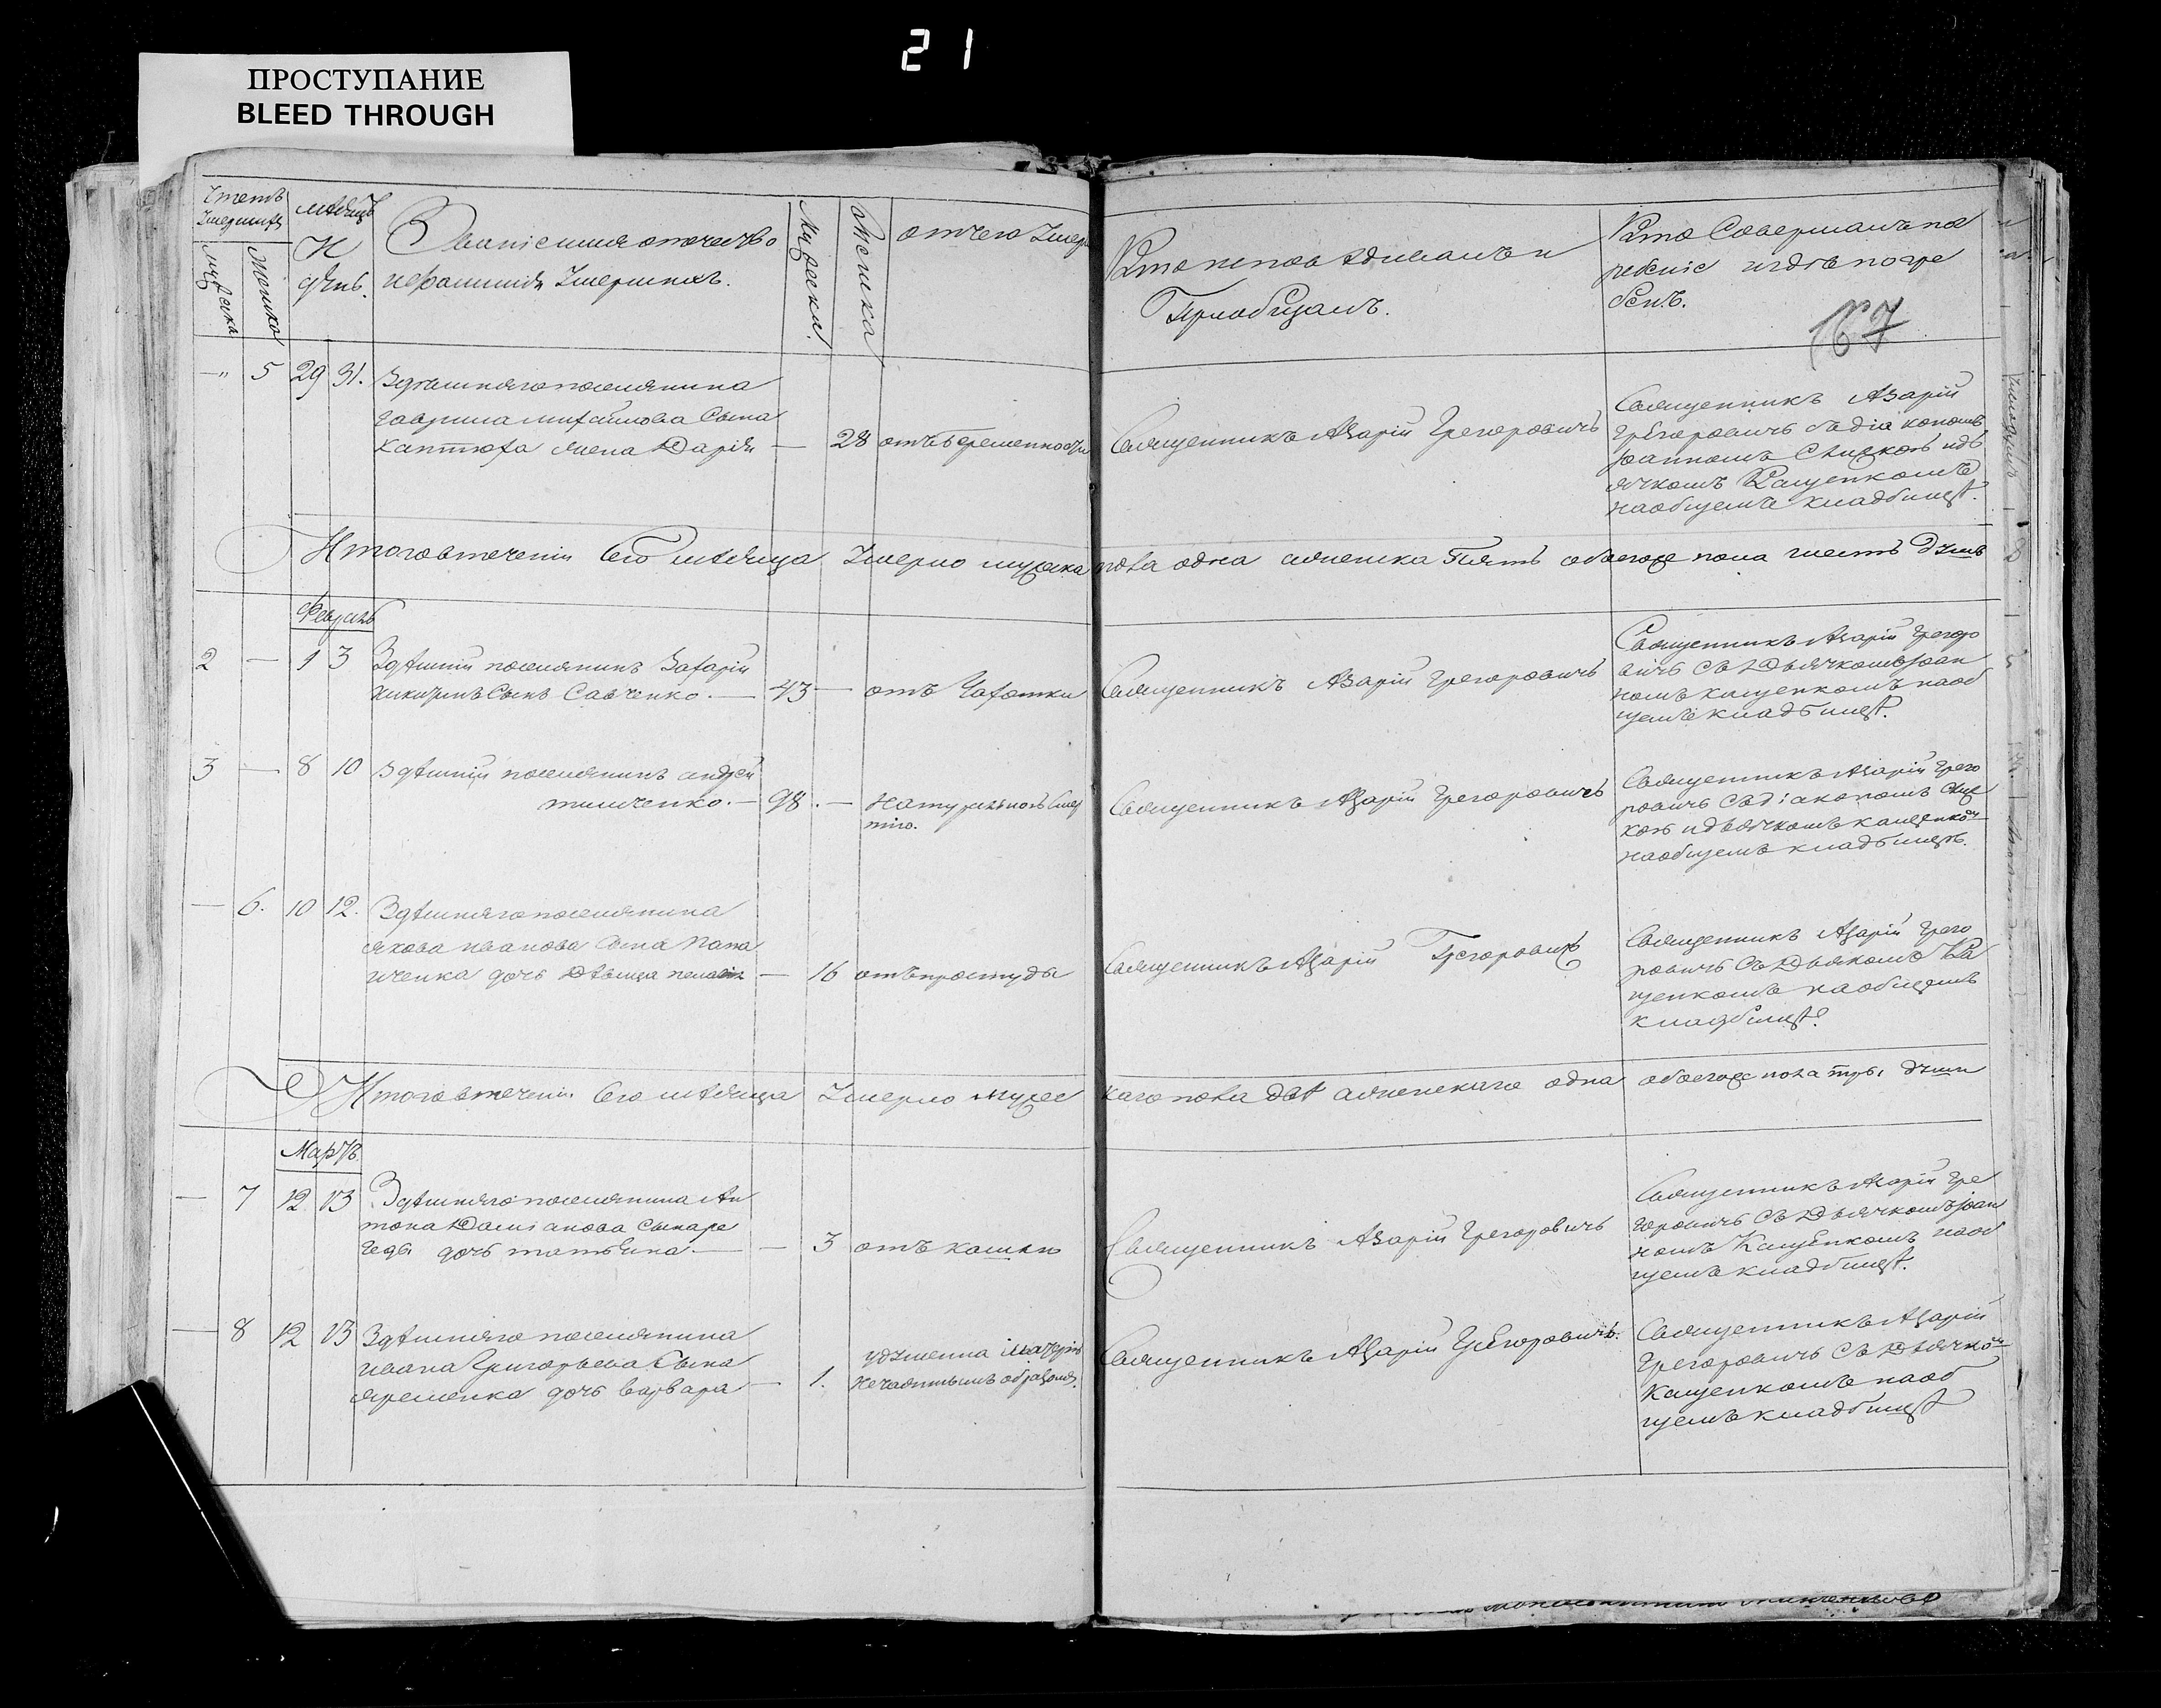 21
ПРОСТУПАНИЕ
BLEED THROUGH
Счетъ
Умершихъ
Мужеска
Женска
Мѣсяцъ
И
день.
Званіе имя отечество
и фамилия Умершихъ.
Мужеска.
Женска
отчего Умер
Кто исповѣдывалъ и
Приобщалъ.
Кто Совершалъ по
гребеніе и гдѣ погре
бенъ.
167
—" 5 29 31. Здѣшняго поселянина
Гаврила Михайлова Сына
Каптюха жена Дарія — 28 отъ беременности
Священникъ Азарій Грегоровичъ
Священникъ Азарій
Грегоровичъ съ діакономъ
Іоанномъ и дь
ячкомъ Кащенкомъ
на общемъ кладбищѣ.
Итого втеченіи Сего мѣсяца Умерло мужска пола одна а женска Пять обоего пола шесть душъ
Февраль
2 — 1 3 Здѣшній поселянинъ Захарій
Сынъ Савченко. — 43 — отъ Чахотки
Священникъ Азарій Грегоровичъ
Священникъ Азарій Грегоро
вичъ Съ Дьячкомъ Іоан
номъ Кащенкомъ на об
щемъ кладбищѣ.
3 — 8 10 Здѣшній поселянинъ андрей
тимченко. — 98. — Натуральною Смер
тію.
Священникъ Азарій Грегоровичъ
Священникъ Азарій Грего
ровичъ Съ діакономъ
и дьячкомъ Кащенком
на общемъ кладбищѣ.
— 6. 10 12. Здѣшняго поселянина
якова иванова Сына Пана
сченка дочь Дѣвица — 16 отъ простуды
Священникъ Азарій Грегоровичъ
Священникъ Азарій Грего
ровичъ Съ Дьякомъ Ка
щенкомъ на общемъ
кладбищѣ.
Итого втеченіи Сего мѣсяца Умерло мужес каго пола двѣ а женскаго одна обоего пола три души
Мартъ
— 7 12 13 Здѣшняго поселянина Ан
тона Даміанова Сына ре
геды дочь татьяна. — — 3 отъ кашлю
Священникъ Азарій Грегоровичъ
Священникъ Азарій Гре
горовичъ Съ Дьячкомъ Іоан
номъ Кащенкомъ на об
щемъ кладбищѣ.
— 8 12 13 Здѣшняго поселянина
ивана Григорьева Сына
яременка дочь варвара — 1. удушенна матерію
Нечаяннымъ образомъ.
Священникъ Азарій Грегоровичъ.
Священникъ Азарій
Грегоровичъ Съ Дьячком
Кащенкомъ на об
щемъ кладбищѣ